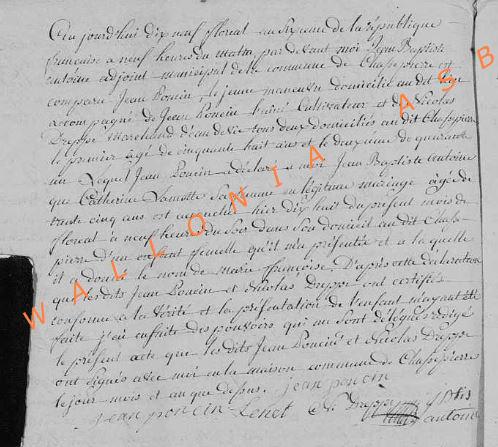 Aujourd'hui dix neuf floreal an sixieme de la republique
française a neuf heures du matin par devant moi Jean Baptiste
antoine adjoint municipal de la commune de Chassepierre est
comparu Jean Poncin le jeune manœuvre domicilié au dit lieu
accompagné de Jean Poncin l'aîné Cultivateur et de Nicolas
Dreppé Marchand d'eau de vie tous deux domiciliés au dit Chassepierre
le premier agé de cinquante huit ans et le deuxieme de quarante
un Lequel Jean Poncin a déclaré a moi Jean Baptiste antoine
que Catherine Lamotte Sa femme en légitime mariage agée de
trente cinq ans est accouchée hier dix huit du présent mois de
floreal à neuf heures du Soir dans Son domicil au dit Chasse
pierre d'un enfant femelle qu'il m'a présentée et a la quelle
il a donné le nom de Marie françoise. D'après cette declaration
que les dits Jean Poncin et Nicolas Dreppé ont certifiée
conforme a la Vérité et la présentation de l'enfant m'ayant été
faite j'ai ensuite des pouvoirs qui me Sont délégués rédigé
le présent acte que les dits Jean Poncin et Nicolas Dreppé
ont signés avec moi en la maison commune de Chassepierre
le jour mois et an que dessus. jean poncin
jean poncin Lenet N. Dreppé antoine
WALLONIA ASB